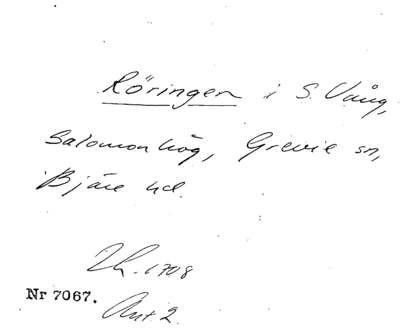 Röringen i S. Vång,
Salomonhög, Grevie sn,
Bjäre hd.
Lh. 1708
Nr 7067.
Akt. 2.